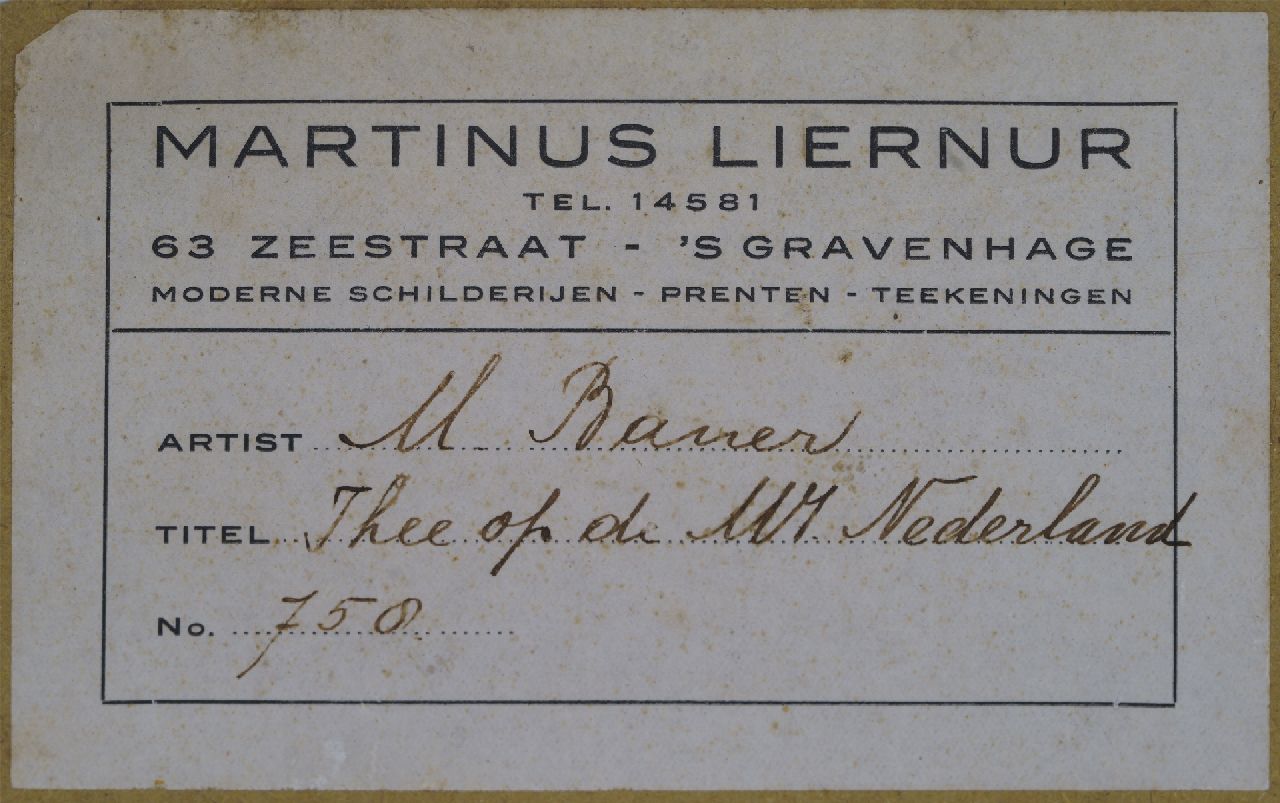 MARTINUS LIERNUR
TEL. 14581
63 ZEESTRAAT - 'S GRAVENHAGE
MODERNE SCHILDERIJEN - PRENTEN - TEEKENINGEN
ARTIST M. Bauer
TITEL Thee op de Nederland
No. 758